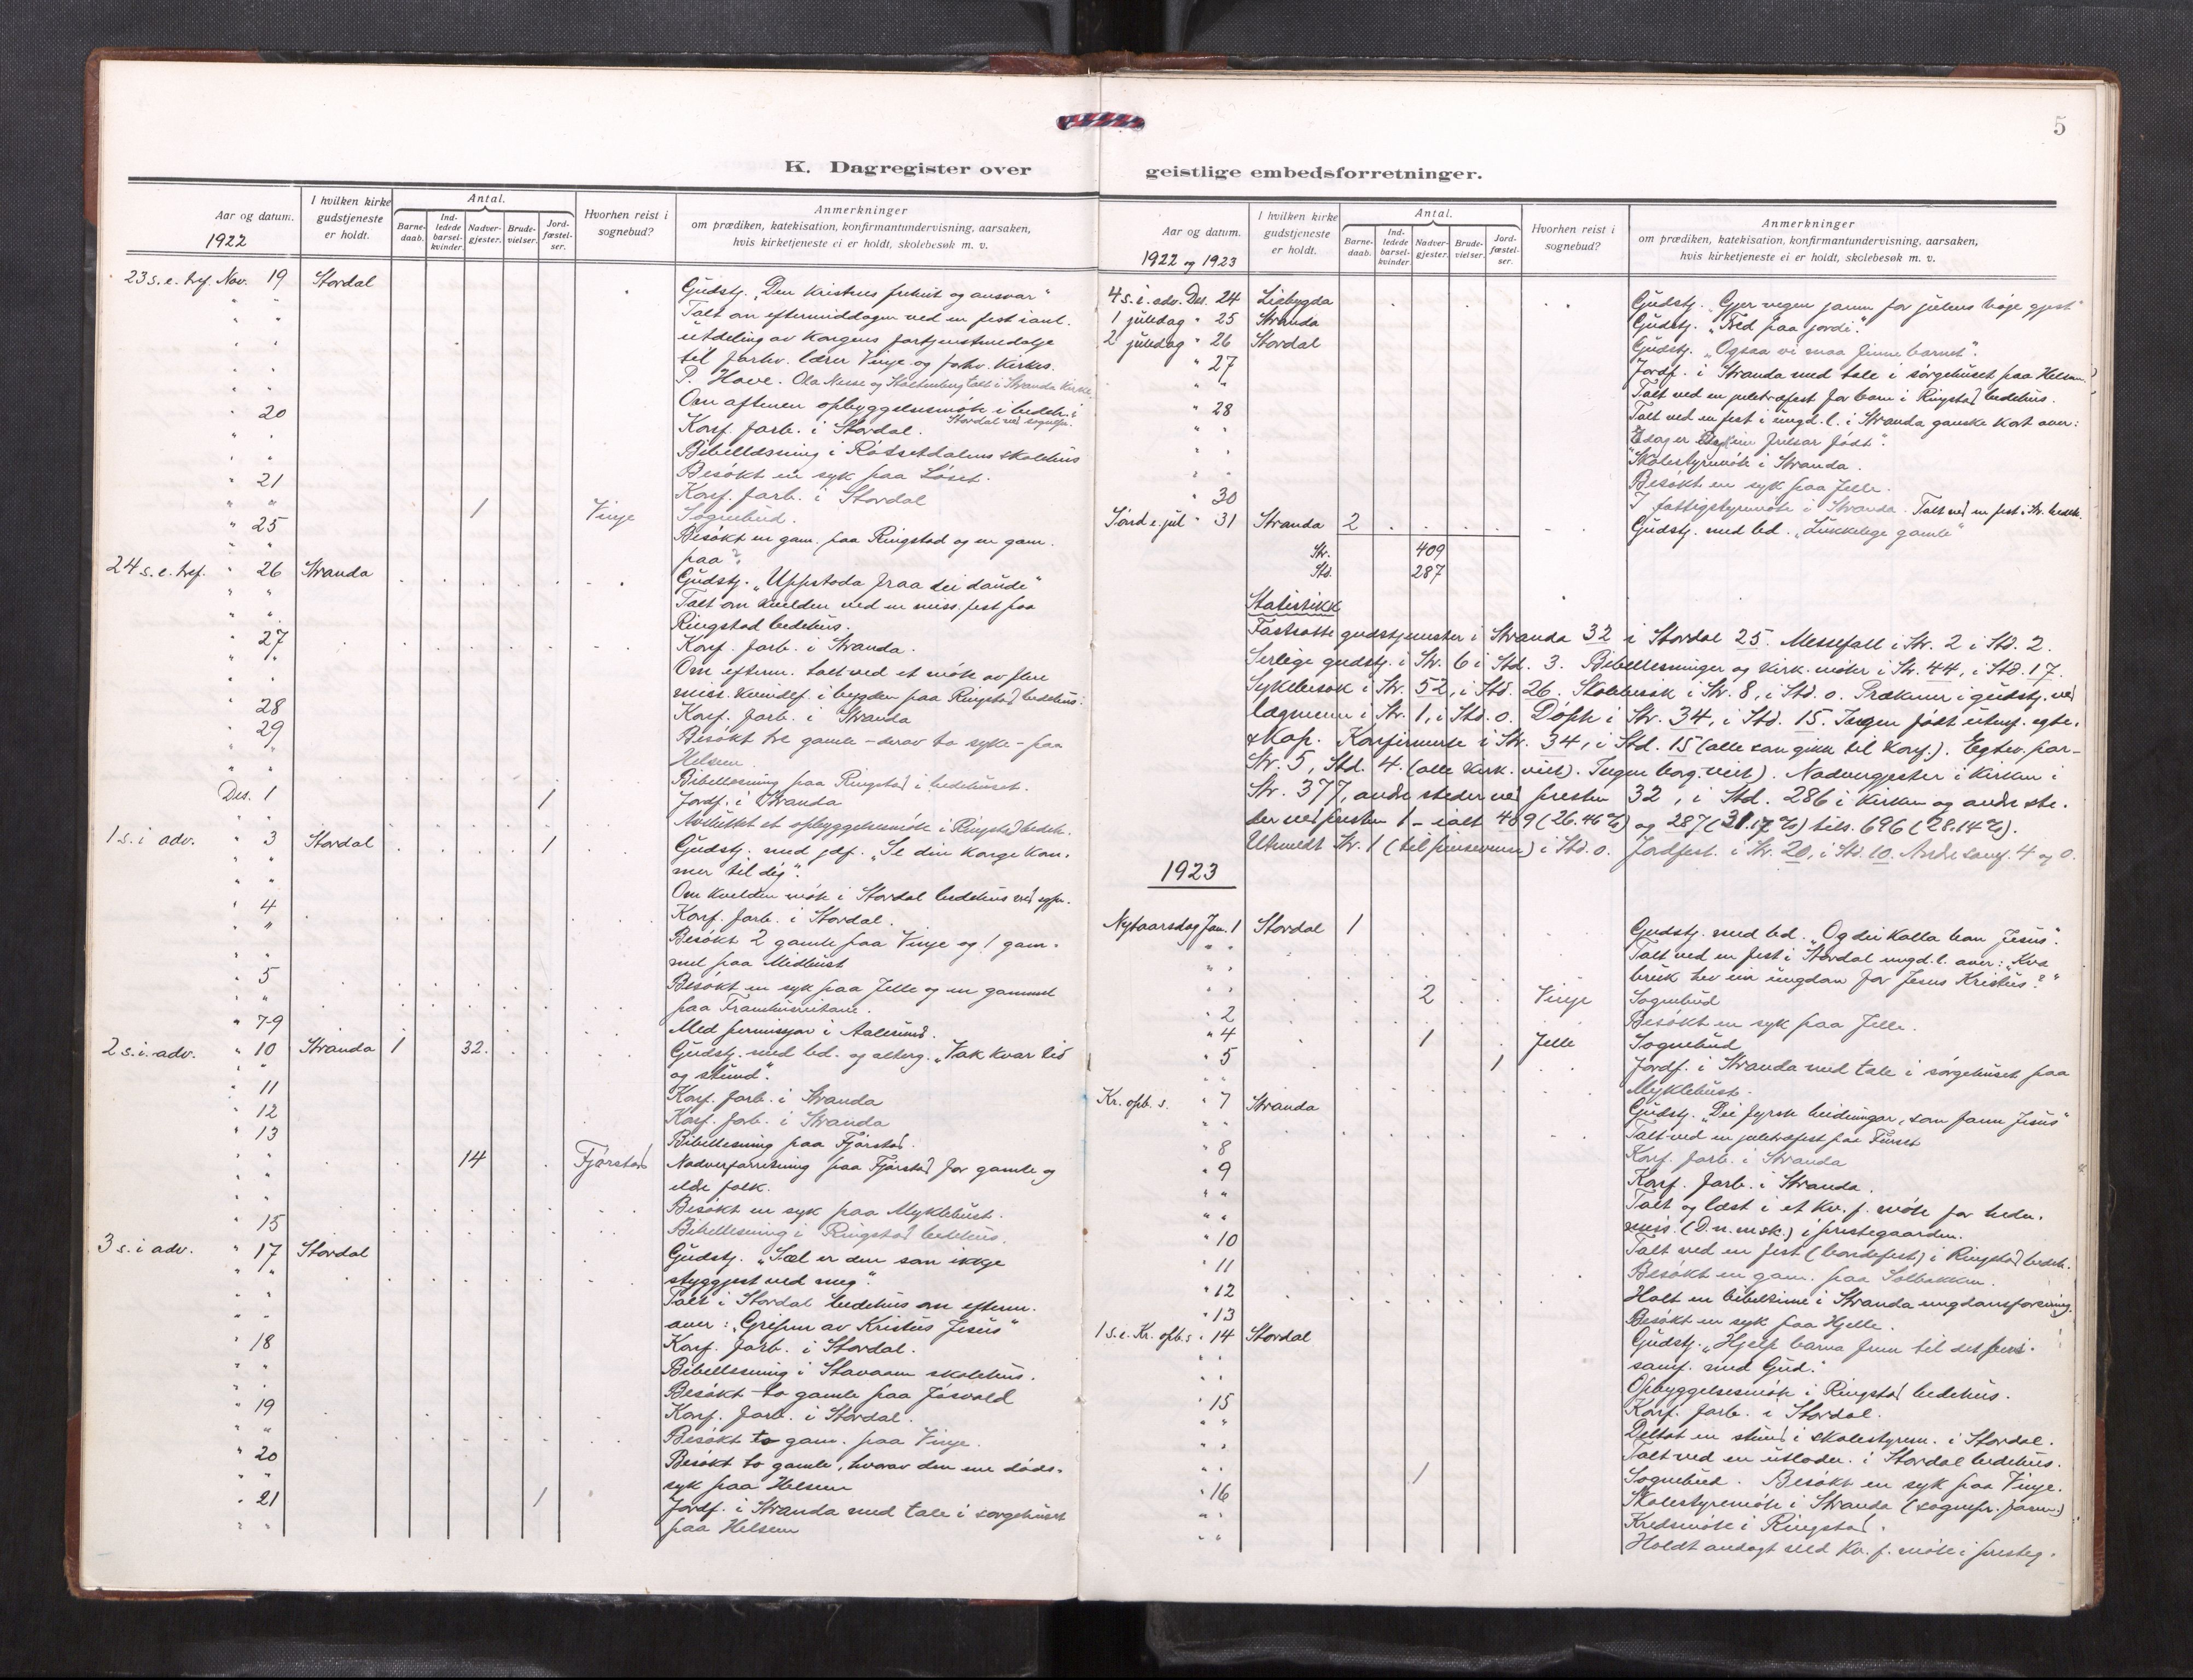 5
K. Dagregister over geistlige embedsforretninger.
Aar og datum. 1922
I hvilken kirke gudstjeneste er holdt.
Antal.
Barnedaab.
Indledede barselkvinder.
Nadvergjester.
Brudevielser.
Jordfæstelser.
Hvorhen reist i sognebud?
Anmerkninger
om prædiken, katekisation, konfirmantundervisning, aarsaken,
hvis kirketjeneste ei er holdt, skolebesøk m. v.
23 s. e. tref. Nov. 19 Stordal Gudstj. "Den kristnes frihut og ansvar"
Talt om eftermiddagen ved en fest i anl.
utdeling av Kongens fortjenstmedalje
til forhv. lærer Vinje og forhv. kirkes.
P. Hove. Ola Nesse og Stoltenberg talt i Stranda kirke.
Om aftenen opbyggelsesmöte i bedeh. i
Stordal ved sognepr.
" 20 Konf. forb. i Stordal.
Bibellæsning i Rödsetdalens skolehus
Besökt en syk paa Löset.
" 21 Konf. forb. i Stordal
" " 1 Vinje Sognebud.
" 25 Besökt en gam. paa Ringstad og en gam.
paa ?
24 s. e. tref. " 26 Stranda Gudstj. "Uppstoda fraa dei daude"
Talt om kvelden ved en miss. fest paa
Ringstad bedehus.
" 27 Konf. forb. i Stranda.
Om efterm. talt ved et möte av flere
miss. kvindef. i bygden paa Ringstad bedehus.
" 28 Konf. forb. i Stranda
" 29 Besökt tre gamle - derav to syke - paa
Helsem.
Bibellesning paa Ringstad i bedehuset.
Des. 1 1 Jordf. i Stranda
Avsluttet et opbyggelsesmöte i Ringstad bedeh.
1 s. i adv. " 3 Stordal 1 Gudstj. med jdf. "Se din konge kommer
til dig".
Om kvelden möte i Stordal bedehus ved sgpr.
" 4 Konf. forb. i Stordal.
Besökt 2 gamle paa Vinje og 1 gammel
paa Midhust
" 5 Besökt en syk paa Jelle og en gammel
paa
" 7-9 Med permisjon i Aalesund.
2 s. i. adv. " 10 Stranda 1 32. Gudstj. med bd. og alterg. "Vak kvar tid
og stund".
" 11 Konf. forb. i Stranda
" 12 Konf. forb. i Stranda
" 13 Bibellesning paa Fjörstad.
" " 14 Fjörstad Nadverforretning paa Fjörstad for gamle og
eldre folk.
Besökt en syk paa Myklebust.
" 15 Bibellesning i Ringstad bedehus.
3 s. i adv. " 17 Stordal Gudstj. "Sæl er den som ikkje
styggjest ved meg".
Talt i Stordal bedehus om efterm.
over: "Grepen av Kristus Jesus"
" 18 Konf. forb. i Stordal.
Bibellesning i Stavaam skolehus.
Besökt to gamle paa Jösvold
" 19 Konf. forb. i Stordal.
Besökt to gam. paa Vinje.
" 20 Besökt to gamle, hvorav den ene dödssyk
paa Helsem
" 21 1 Jordf. i Stranda med tale i sorgehuset
paa Helsem
Aar og datum. 1922 og 1923
I hvilken kirke gudstjeneste er holdt.
Antal.
Barnedaab.
Indledede barselkvinder.
Nadvergjester.
Brudevielser.
Jordfæstelser.
Hvorhen reist i sognebud?
Anmerkninger
om prædiken, katekisation, konfirmantundervisning, aarsaken,
hvis kirketjeneste ei er holdt, skolebesøk m. v.
4 s. i. adv. Des. 24 Liabygda Gudstj. "Gjer vegen jamn for julens höge gjest"
1 juledag " 25 Stranda Gudstj. "Fred paa jordi".
2 juledag " 26 Stordal Gudstj. "Ogsaa vi maa finne barnet".
" 27 Jordf. i Stranda med tale i sörgehuset paa Helsem.
Talt ved en juletræfest for barn i Ringstad bedehus.
" 28 Talt ved en fest i ungd. l. i Stranda ganske kort over:
"Idag er Dykk ein frelsar födt".
Skolestyremöte i Stranda.
Besökt en syk paa Jelle.
" 30 I fattigstyremöte i Stranda. Talt ved en fest i Str. bedeh.
Sönd. e. jul " 31 Stranda 2 Gudstj. med bd. "Lukkelege gamle"
Str. 409
Std. 287
Statistikk
Fastsatte gudstjenester i Stranda 32 i Stordal 25. Messefall i Str. 2 i Std. 2.
Serlige gudstj. i Str. 6 i Std. 3. Bibellesninger og kirk. möter i Str. 44, i Std. 17.
Sykebesök i Str. 52, i Std. 26. Skolebesök i Str. 8, i Std. 0. Prækener i gudstj. ved
lægmenn i Str. 1, i Std. 0. Döpte i Str. 34, i Std. 15. Ingen födt utenf. egte-
skap. Konfirmerte i Str. 34, i Std. 15 (alle som gikk til konf.). Egtev. par -
Str. 5, Std. 4. (alle kirk. viet). Ingen borg. viet). Nadvergjester i kirken i
Str. 377, andre steder ved presten 32, i Std. 286 i kirken og andre steder
ved presten 1 - ialt 409 (26.46%) og 287 (31.17%) tils. 696 (28.14%).
Utmeldt Str. 1 (til pinsevenn) i Std. 0. Jordfest. i Str. 20, i Std. 10. Andre samf. 4 og 0.
1923
Nytaarsdag Jan. 1 Stordal 1 Gudstj. med bd. "Og dei kalla han Jesus".
Talt ved en fest i Stordal ungd. l. over: "Kva
bruk hev ein ungdom for Jesus Kristus?"
" " 2 Vinje Sognebud
" 2 Besökt en syk paa Jelle.
" 4 1 Jelle Sognebud
" 5 1 Jordf. i Stranda med tale i sörgehuset paa
Myklebust.
Kr. opb. s. " 7 Stranda Gudstj. "Dei fyrste heidningar, som fann Jesus"
Talt ved en juletræfest paa Furset
" 8 Konf. forb. i Stranda
" 9 Konf. forb. i Stranda.
Talt og læst i et kv. f. möte for hedn.
miss. (D. n. m. sk.) i prestegaarden.
" 10 Talt ved en fest (bondefest) i Ringstad bedeh.
" 11 Besökt en gam. paa Solbakken.
" 12 Holt en bibeltime i Stranda ungdomsforening.
" 13 Besökt en syk paa Hjelle.
1 s. e. Kr. opb. s. " 14 Stordal Gudstj. "Hjelp barna frem til
samf. med Gud."
Opbyggelsesmöte i Ringstad bedehus.
" 15 Konf. forb. i Stordal.
Deltat en stund i skolestyrem. i Stordal.
Talt ved en utlodn. i Stordal bedehus.
1 Sognebud. Besökt en syk paa Vinje.
" 16 Skolestyremöte i Stranda (sognepr. form.)
Kredsmöte i Ringstad.
Holdt andagt ved Kv. f. möte i presteg.